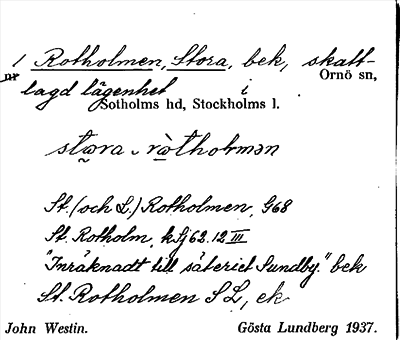 1 Rotholmen, Stora, bek, skatt-
nr Ornö sn,
lagd lägenhet i
Sotholms hd, Stockholms l.
stora ròtholmən
St. (och L.) Rotholmen, G68
St. Rotholm, kSj 62.12 III
"Inräknadt till säteriet Sundby." bek
St. Rotholmen SL, ek
John Westin. Gösta Lundberg 1937.